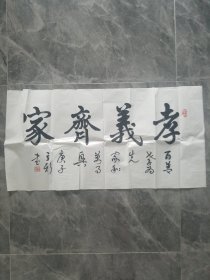 孝義齊家
百善
孝为
先
家和
萬事
興
庚子